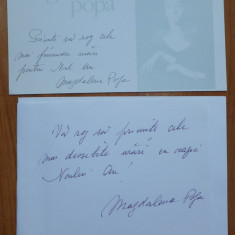 popa
Primiti vă rog cele
mai frumoase urări
pentru Noul An
Magdalena Popa
Vă rog să primiti cele
mai deosebite urări cu ocazia
Noului An!
Magdalena Popa